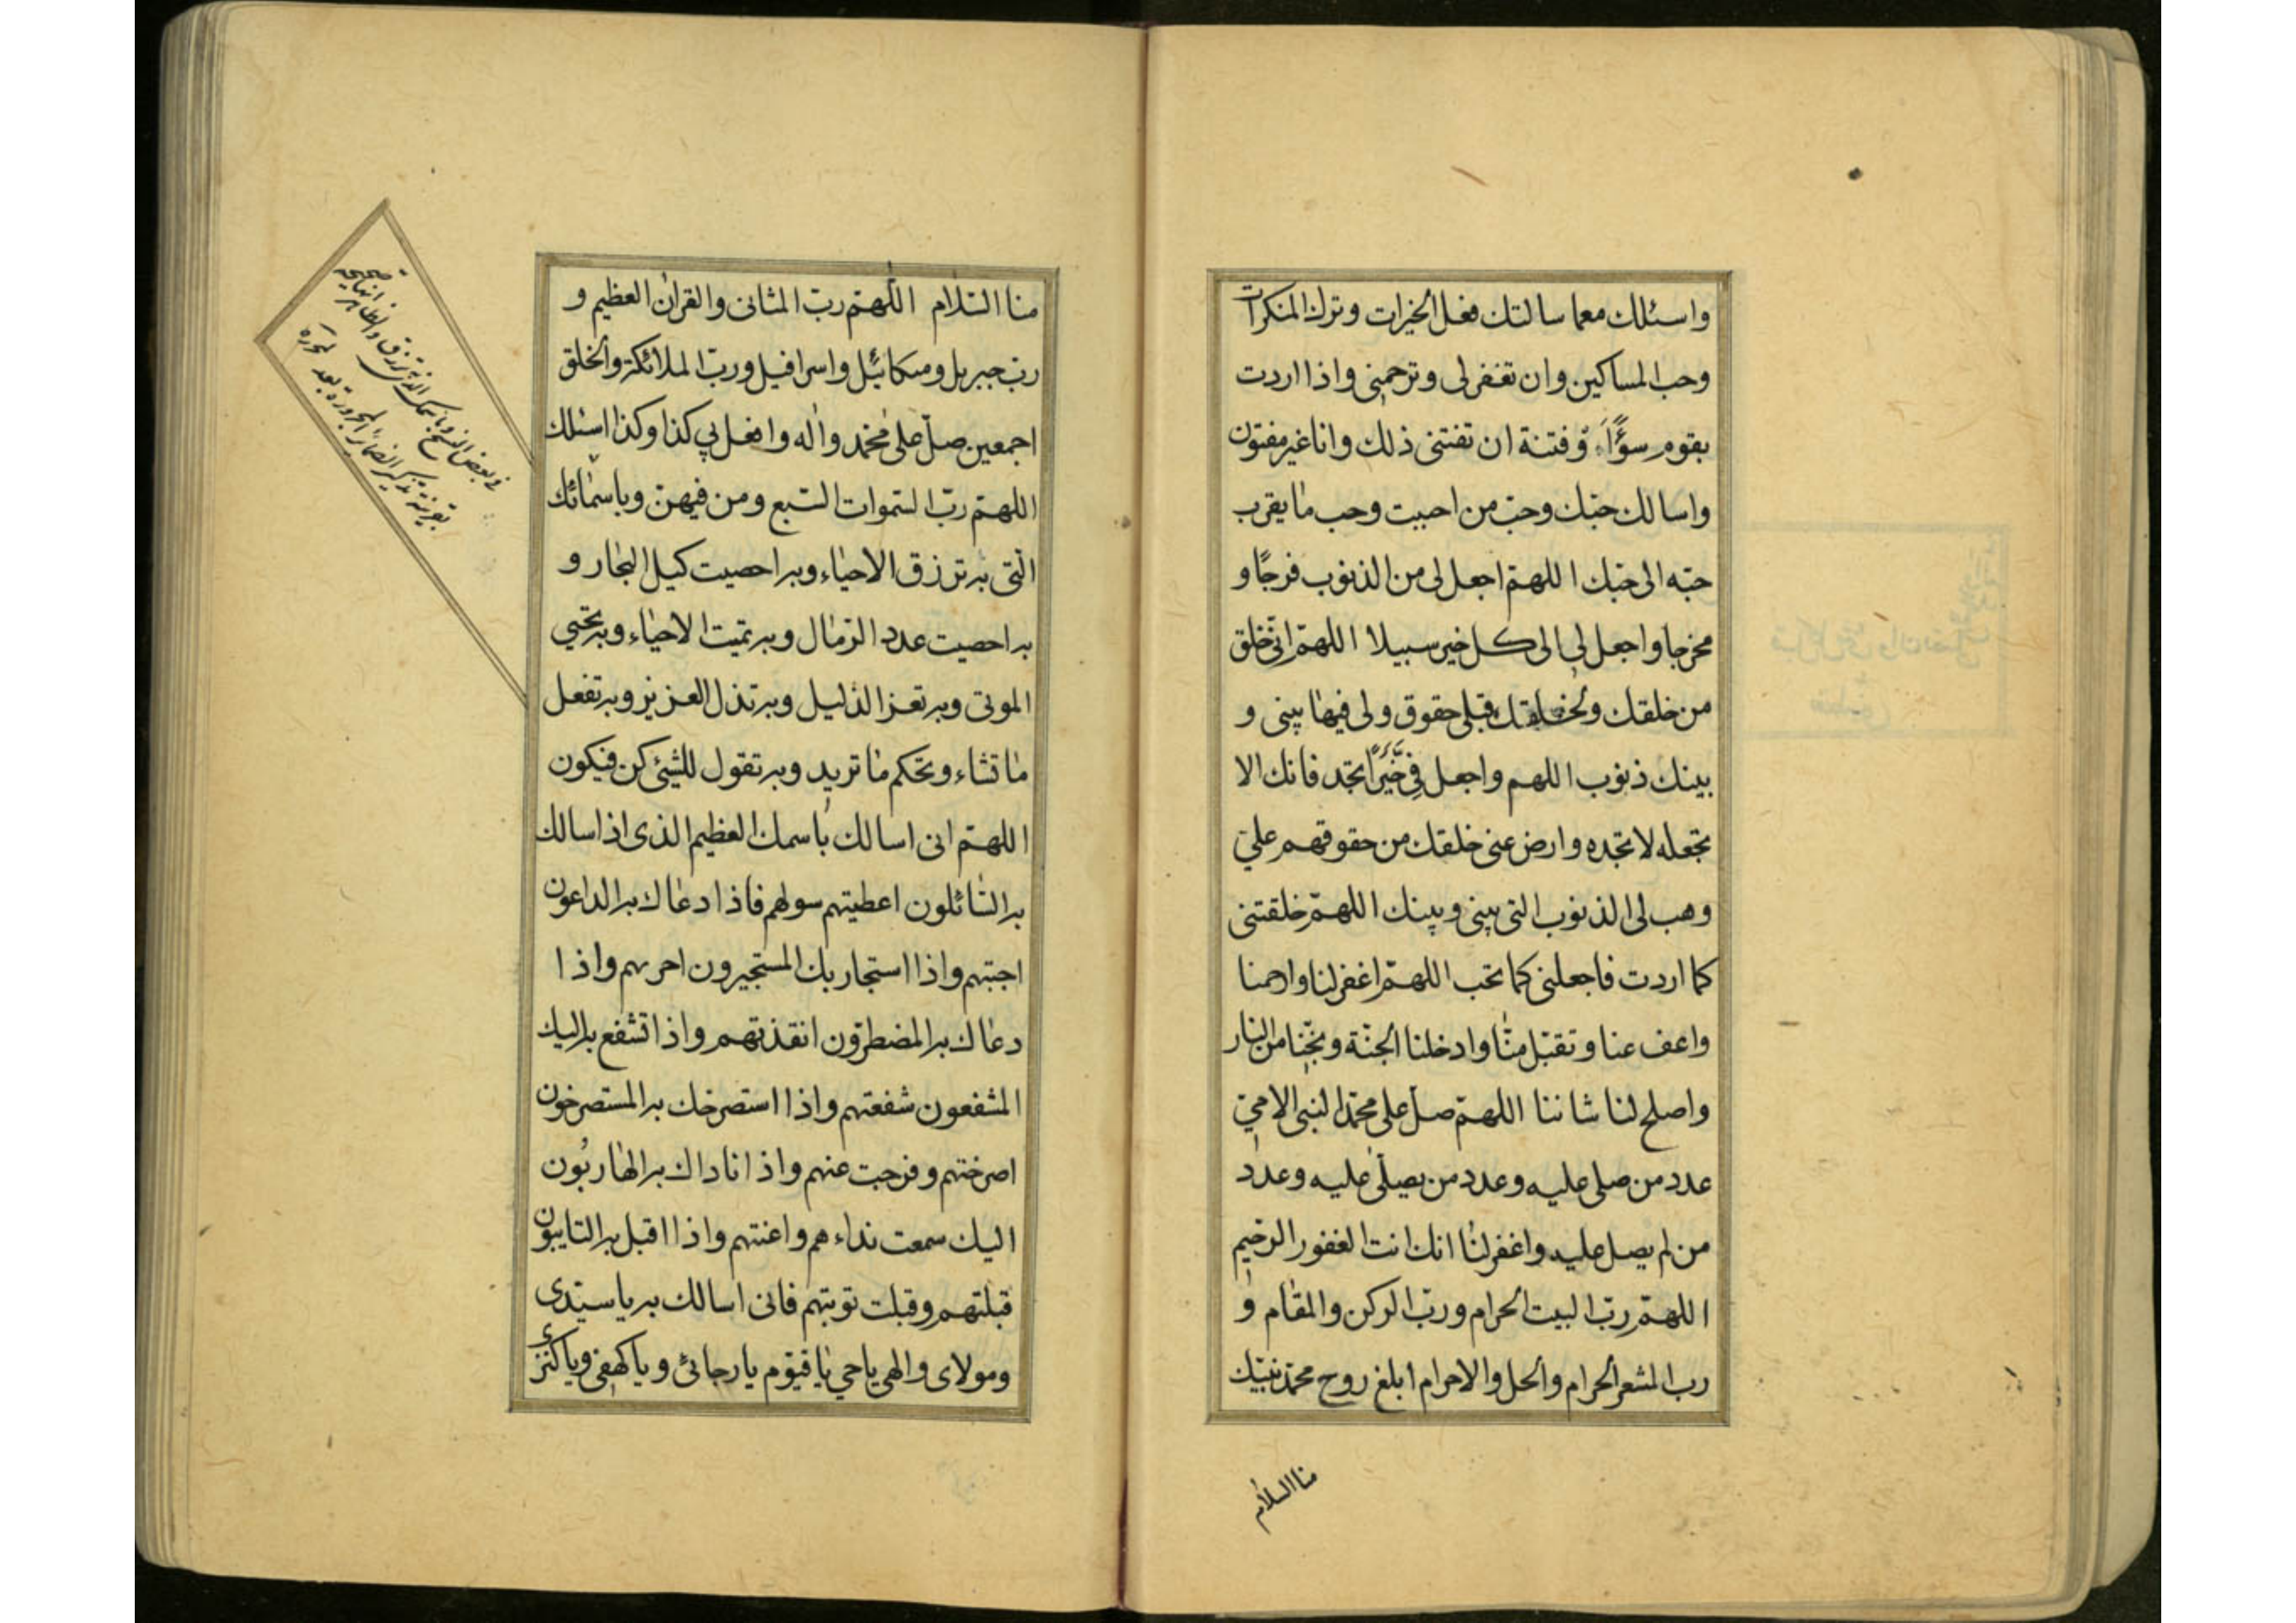 واسئلك معما سالتك فعل الخيرات وترك المنكرات
وحب المساكين وان تغفر لى وترحمنى واذا اردت
بقوم سؤًا وفتنة ان تفتنى ذلك وانا غير مفتون
واسالك حبّك وحبّ من احببت وحب ما يقرب
حبّه الى حبّك اللهمّ اجعل لى من الذنوب فرجًا و
مخرجا واجعل لى الى كل خير سبيلا اللهمّ انّى خلق
من خلقك ولخلقك قبلى حقوق ولى فيها بينى و
بينك ذنوب اللهم واجعل فِىّ خيرًا تجده فانك الا
تجعله لا تجده وارض عنى خلقك من حقوقهم علىّ
وهب لى الذنوب التى بينى وبينك اللهمّ خلقتنى
كما اردت فاجعلنى كما تحب اللهمّ اغفر لنا وارحمنا
واعف عنا وتقبّل منّا وادخلنا الجنّة ونجّنا من النار
واصلح لنا شاننا اللهمّ صلّ على محمّد النبى الامىّ
عدد من صلى عليه وعدد من يصلّى عليه وعدد
من لم يصل عليه واغفر لنا انك انت الغفور الرحيم
اللهمّ ربّ البيت الحرام وربّ الركن والمقام و
رب المشعر الحرام والحل والاحرام ابلغ روح محمّد نبيّك
منا السلام
منا السّلام اللّهمّ ربّ المثانى والقران العظيم و
ربّ جبريل وميكائيل واسرافيل وربّ الملائكة والخلق
اجمعين صلّ على محمّد واله وافعل بى كذا وكذا اسئلك
اللهمّ ربّ السّموات السّبع ومن فيهنّ وباسمائك
الّتى به ترزق الاحياء وبه احصيت كيل البحار و
به احصيت عدد الرّمال وبه تميت الاحياء وبه تحيى
الموتى وبه تعز الذليل وبه تذل العزيز وبه تفعل
ما تشاء وتحكم ما تريد وبه تقول للشئ كن فيكون
اللهمّ انى اسالك باسمك العظيم الذى اذ اسالك
به السّائلون اعطيتهم سولهم فاذا دعاك به الداعون
اجبتهم واذا استجار بك المستجيرون اجرتهم واذا
دعاك به المضطرّون انقذتهم واذا تشفع به اليك
المشفعون شفعتهم واذا استصرخك به المستصرخون
اصرختهم وفرجت عنهم واذا ناداك به الهاربون
اليك سمعت نداءهم واعنتهم واذا اقبل به التايبون
قبلتهم وقبلت توبتهم فانى اسالك به يا سيّدى
ومولاى والهى ياحى يا قيّوم يا رجائى ويا كهفى ويا كنزى
فى بعض النسخ وباسمك الذى به ترزق